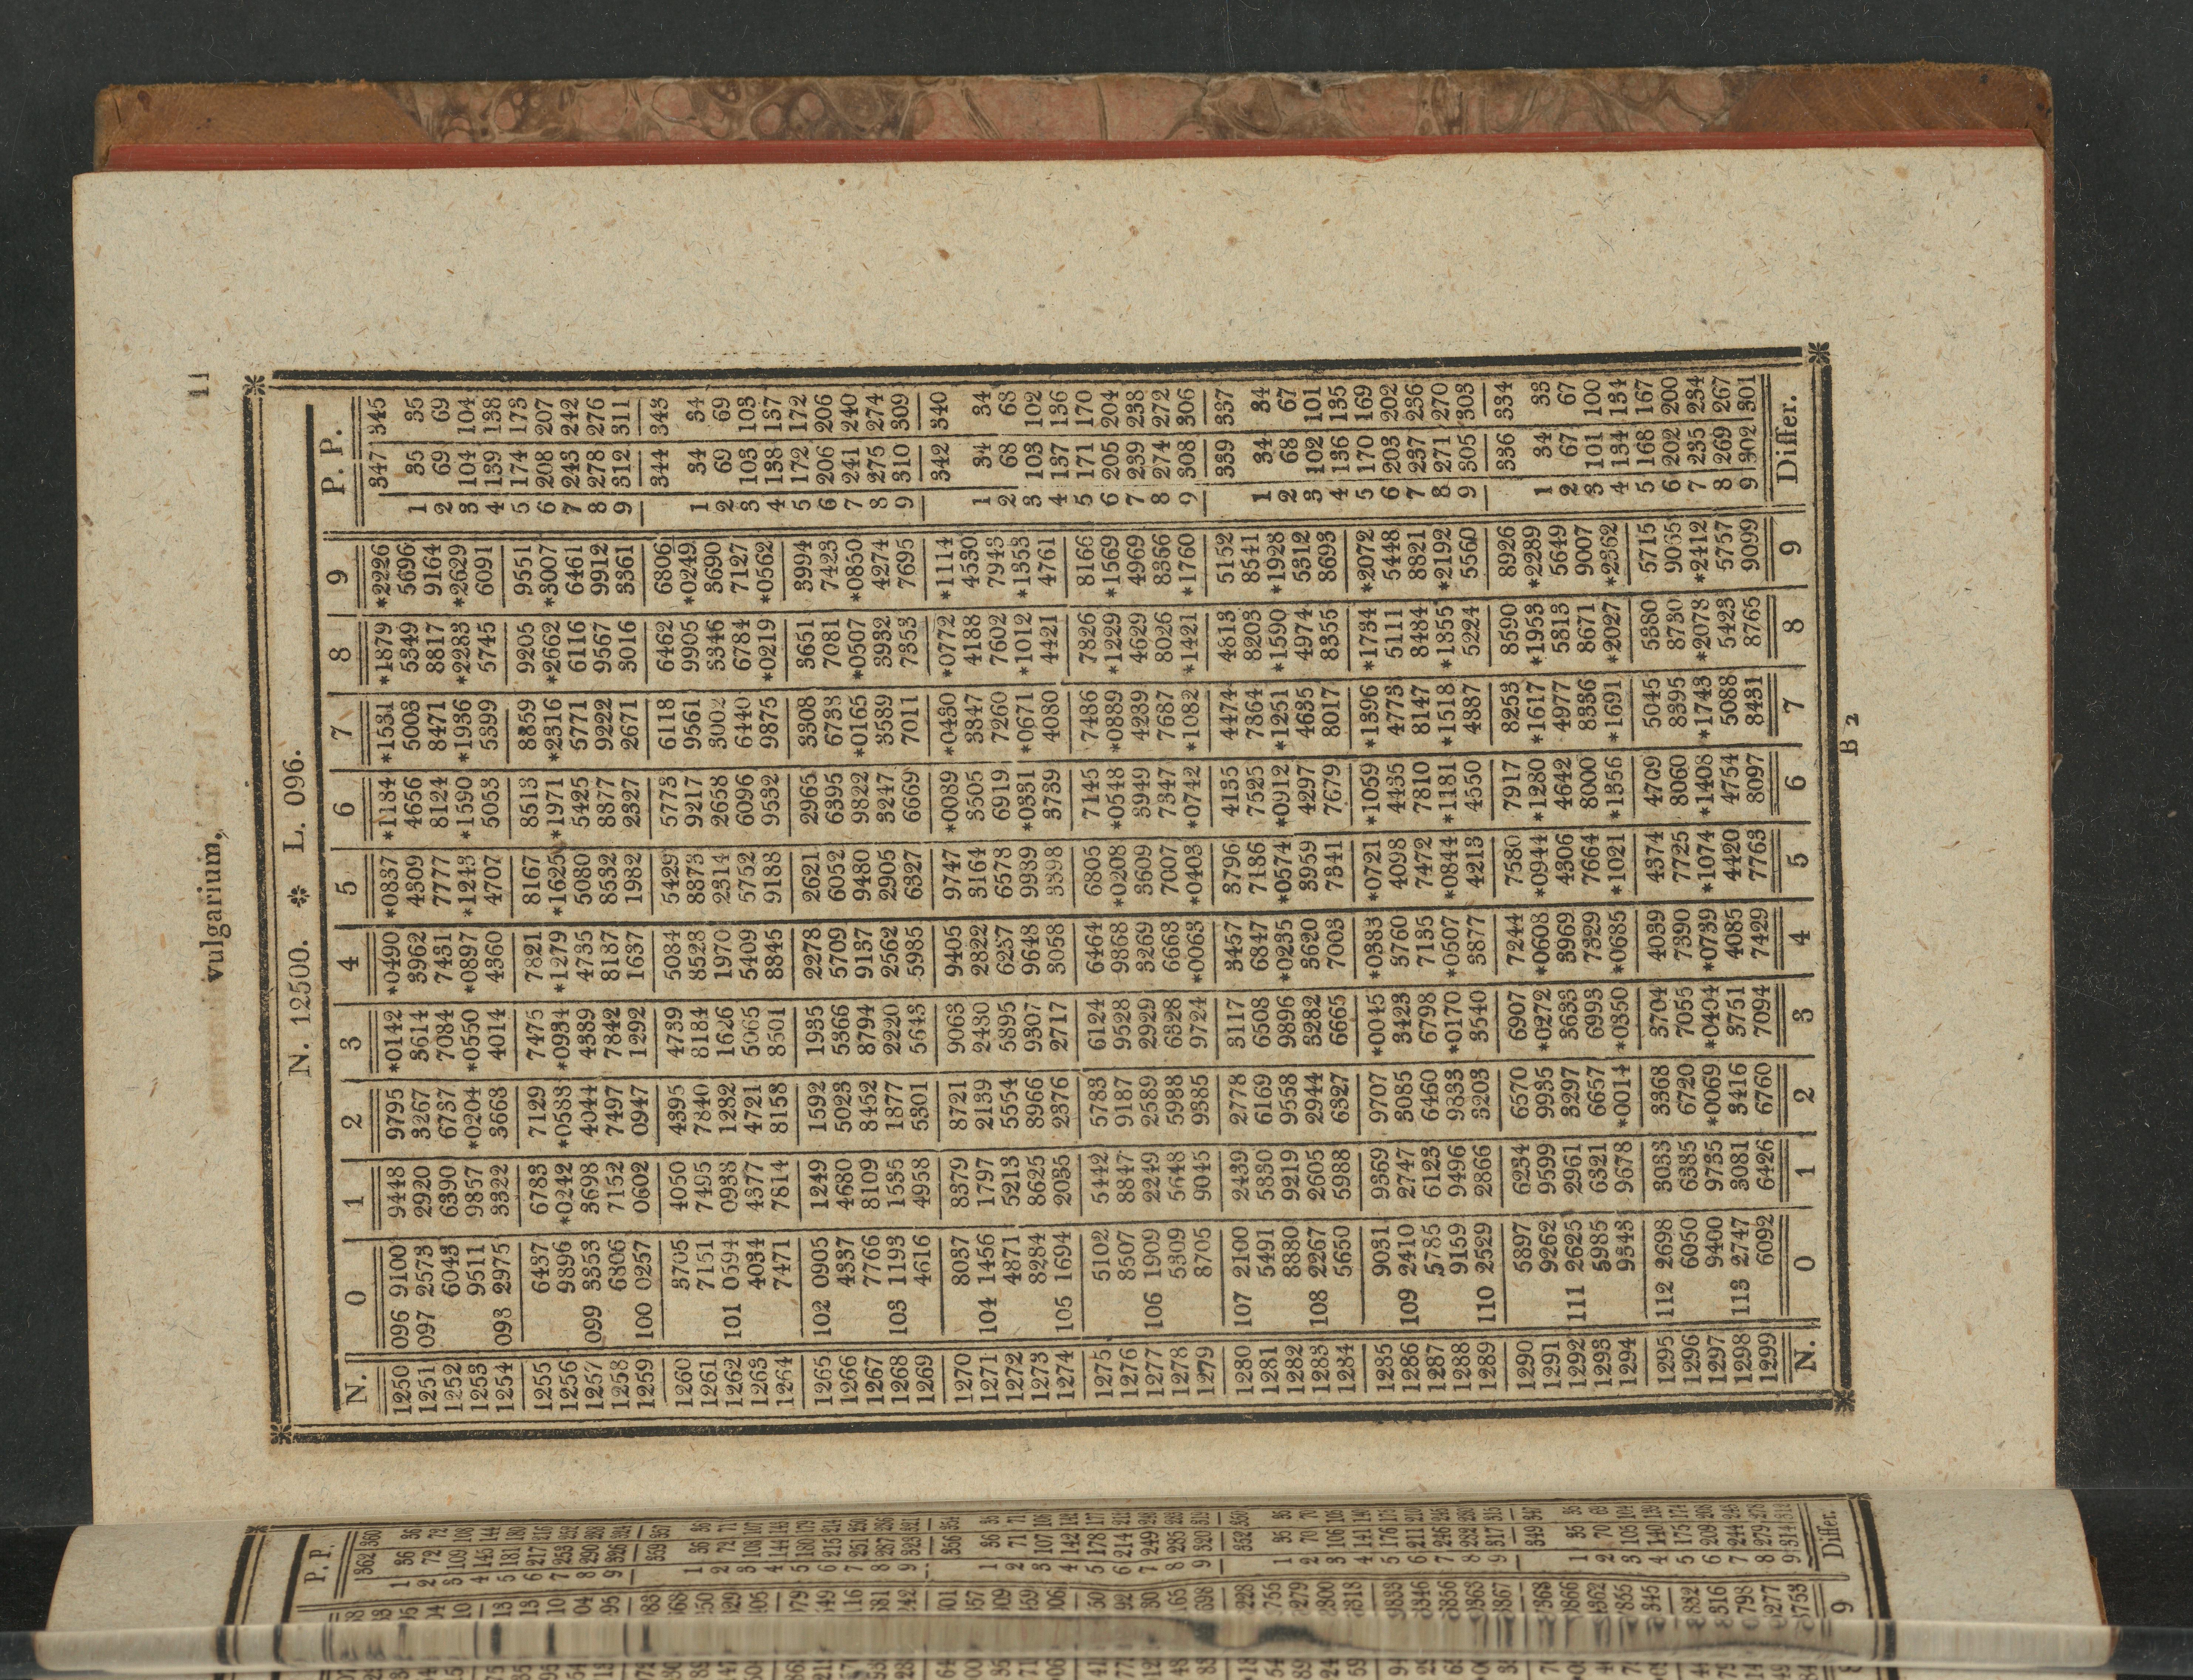 vulgarium, 11
N. 12500. * L. 096.
N. 0 1 2 3 4 5 6 7 8 9 P. P.
1250 096 9100 9448 9795 *0142 *0490 *0837 *1184 *1531 *1879 *2226 347 345
1251 097 2573 2920 3267 3614 3962 4309 4656 5003 5349 5696 1 35 35
1252 6043 6390 6737 7084 7431 7777 8124 8471 8817 9164 2 69 69
1253 9511 9857 *0204 *0550 *0897 *1243 *1590 *1936 *2283 *2629 3 104 104
1254 098 2975 3322 3668 4014 4360 4707 5053 5399 5745 6091 4 139 138
1255 6437 6783 7129 7475 7821 8167 8513 8859 9205 9551 5 174 173
1256 9896 *0242 *0588 *0934 *1279 *1625 *1971 *2316 *2662 *3007 6 208 207
1257 099 3353 3698 4044 4389 4735 5080 5425 5771 6116 6461 7 243 242
1258 6806 7152 7497 7842 8187 8532 8877 9222 9567 9912 8 278 276
1259 100 0257 0602 0947 1292 1637 1982 2327 2671 3016 3361 9 312 311
1260 3705 4050 4395 4739 5084 5429 5773 6118 6462 6806 344 343
1261 7151 7495 7840 8184 8528 8873 9217 9561 9905 *0249 1 34 34
1262 101 0594 0938 1282 1626 1970 2314 2658 3002 3346 3690 2 69 69
1263 4034 4377 4721 5065 5409 5752 6096 6440 6784 7127 3 103 103
1264 7471 7814 8158 8501 8845 9188 9532 9875 *0219 *0562 4 138 137
1265 102 0905 1249 1592 1935 2278 2621 2965 3308 3651 3994 5 172 172
1266 4337 4680 5023 5366 5709 6052 6395 6738 7081 7423 6 206 206
1267 7766 8109 8452 8794 9137 9480 9822 *0165 *0507 *0850 7 241 240
1268 103 1193 1535 1877 2220 2562 2905 3247 3589 3932 4274 8 275 274
1269 4616 4958 5301 5643 5985 6327 6669 7011 7353 7695 9 310 309
1270 8037 8379 8721 9063 9405 9747 *0089 *0430 *0772 *1114 342 340
1271 104 1456 1797 2139 2480 2822 3164 3505 3847 4188 4530 1 34 34
1272 4871 5213 5554 5895 6237 6578 6919 7260 7602 7943 2 68 68
1273 8284 8625 8966 9307 9648 9989 *0331 *0671 *1012 *1353 3 103 102
1274 105 1694 2035 2376 2717 3058 3398 3739 4080 4421 4761 4 137 136
1275 5102 5442 5783 6124 6464 6805 7145 7486 7826 8166 5 171 170
1276 8507 8847 9187 9528 9868 *0208 *0548 *0889 *1229 *1569 6 205 204
1277 106 1909 2249 2589 2929 3269 3609 3949 4289 4629 4969 7 239 238
1278 5309 5648 5988 6328 6668 7007 7347 7687 8026 8366 8 274 272
1279 8705 9045 9385 9724 *0063 *0403 *0742 *1082 *1421 *1760 9 308 306
1280 107 2100 2439 2778 3117 3457 3796 4135 4474 4813 5152 339 337
1281 5491 5830 6169 6508 6847 7186 7525 7864 8203 8541 1 34 34
1282 8880 9219 9558 9896 *0235 *0574 *0912 *1251 *1590 *1928 2 68 67
1283 108 2267 2605 2944 3282 3620 3959 4297 4635 4974 5312 3 102 101
1284 5650 5988 6327 6665 7003 7341 7679 8017 8355 8693 4 136 135
1285 9031 9369 9707 *0045 *0383 *0721 *1059 *1396 *1734 *2072 5 170 169
1286 109 2410 2747 3085 3423 3760 4098 4435 4773 5111 5448 6 203 202
1287 5785 6123 6460 6798 7135 7472 7810 8147 8484 8821 7 237 236
1288 9159 9496 9833 *0170 *0507 *0844 *1181 *1518 *1855 *2192 8 271 270
1289 110 2529 2866 3203 3540 3877 4213 4550 4887 5224 5560 9 305 303
1290 5897 6234 6570 6907 7244 7580 7917 8253 8590 8926 336 334
1291 9262 9599 9935 *0272 *0608 *0944 *1280 *1617 *1953 *2289 1 34 33
1292 111 2625 2961 3297 3633 3969 4306 4642 4977 5313 5649 2 67 67
1293 5985 6321 6657 6993 7329 7664 8000 8336 8671 9007 3 101 100
1294 9343 9678 *0014 *0350 *0685 *1021 *1356 *1691 *2027 *2362 4 134 134
1295 112 2698 3033 3368 3704 4039 4374 4709 5045 5380 5715 5 168 167
1296 6050 6385 6720 7055 7390 7725 8060 8395 8730 9065 6 202 200
1297 9400 9735 *0069 *0404 *0739 *1074 *1408 *1743 *2078 *2412 7 235 234
1298 113 2747 3081 3416 3751 4085 4420 4754 5088 5423 5757 8 269 267
1299 6092 6426 6760 7094 7429 7763 8097 8431 8765 9099 9 302 301
N. 0 1 2 3 4 5 6 7 8 9 Differ.
B 2